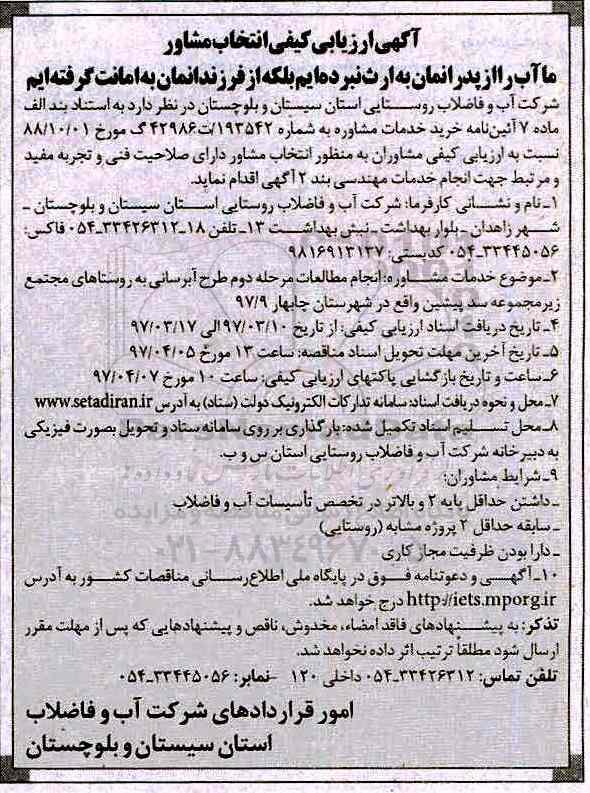 آگهی ارزیابی کیفی انتخاب مشاور
ما آب را از پدرانمان به ارث نبرده‌ایم بلکه از فرزندانمان به امانت گرفته‌ایم
شرکت آب و فاضلاب روستایی استان سیستان و بلوچستان در نظر دارد به استناد بند الف
ماده ۷ آئین‌نامه خرید خدمات مشاوره به شماره ۱۹۳۵۴۲/ت۴۲۹۸۶ک مورخ ۸۸/۱۰/۰۱
نسبت به ارزیابی کیفی مشاوران به منظور انتخاب مشاور دارای صلاحیت فنی و تجربه مفید
و مرتبط جهت انجام خدمات مهندسی بند ۲ آگهی اقدام نماید.
۱ـ نام و نشانی کارفرما: شرکت آب و فاضلاب روستایی استان سیستان و بلوچستان ـ
شهر زاهدان ـ بلوار بهداشت ـ نبش بهداشت ۱۳ـ تلفن ۱۸ـ۳۳۴۲۶۳۱۲ـ۰۵۴ فاکس:
۳۳۴۴۵۰۵۶ـ۰۵۴ کدپستی: ۹۸۱۶۹۱۳۱۳۷
۲ـ موضوع خدمات مشاوره: انجام مطالعات مرحله دوم طرح آبرسانی به روستاهای مجتمع
زیرمجموعه سد پیشین واقع در شهرستان چابهار ۹۷/۹
۴ـ تاریخ دریافت اسناد ارزیابی کیفی: از تاریخ ۹۷/۰۳/۱۰ الی ۹۷/۰۳/۱۷
۵ـ تاریخ آخرین مهلت تحویل اسناد مناقصه: ساعت ۱۳ مورخ ۹۷/۰۴/۰۵
۶ـ ساعت و تاریخ بازگشایی پاکتهای ارزیابی کیفی: ساعت ۱۰ مورخ ۹۷/۰۴/۰۷
۷ـ محل و نحوه دریافت اسناد: سامانه تدارکات الکترونیک دولت (ستاد) به آدرس www.setadiran.ir
۸ـ محل تسلیم اسناد تکمیل شده: بارگذاری بر روی سامانه ستاد و تحویل بصورت فیزیکی
به دبیرخانه شرکت آب و فاضلاب روستایی استان س و ب.
۹ـ شرایط مشاوران:
ـ داشتن حداقل پایه ۲ و بالاتر در تخصص تأسیسات آب و فاضلاب
ـ سابقه حداقل ۲ پروژه مشابه (روستایی)
ـ دارا بودن ظرفیت مجاز کاری
۱۰ـ آگهی و دعوتنامه فوق در پایگاه ملی اطلاع‌رسانی مناقصات کشور به آدرس
http://iets.mporg.ir درج خواهد شد.
تذکر: به پیشنهادهای فاقد امضاء، مخدوش، ناقص و پیشنهادهایی که پس از مهلت مقرر
ارسال شود مطلقا ترتیب اثر داده نخواهد شد.
تلفن تماس: ۳۳۴۲۶۳۱۲ـ۰۵۴ داخلی ۱۲۰ -نمابر: ۳۳۴۴۵۰۵۶ـ۰۵۴
امور قراردادهای شرکت آب و فاضلاب
استان سیستان و بلوچستان
۰۲۱-۸۸۳۴۹۶۷۰